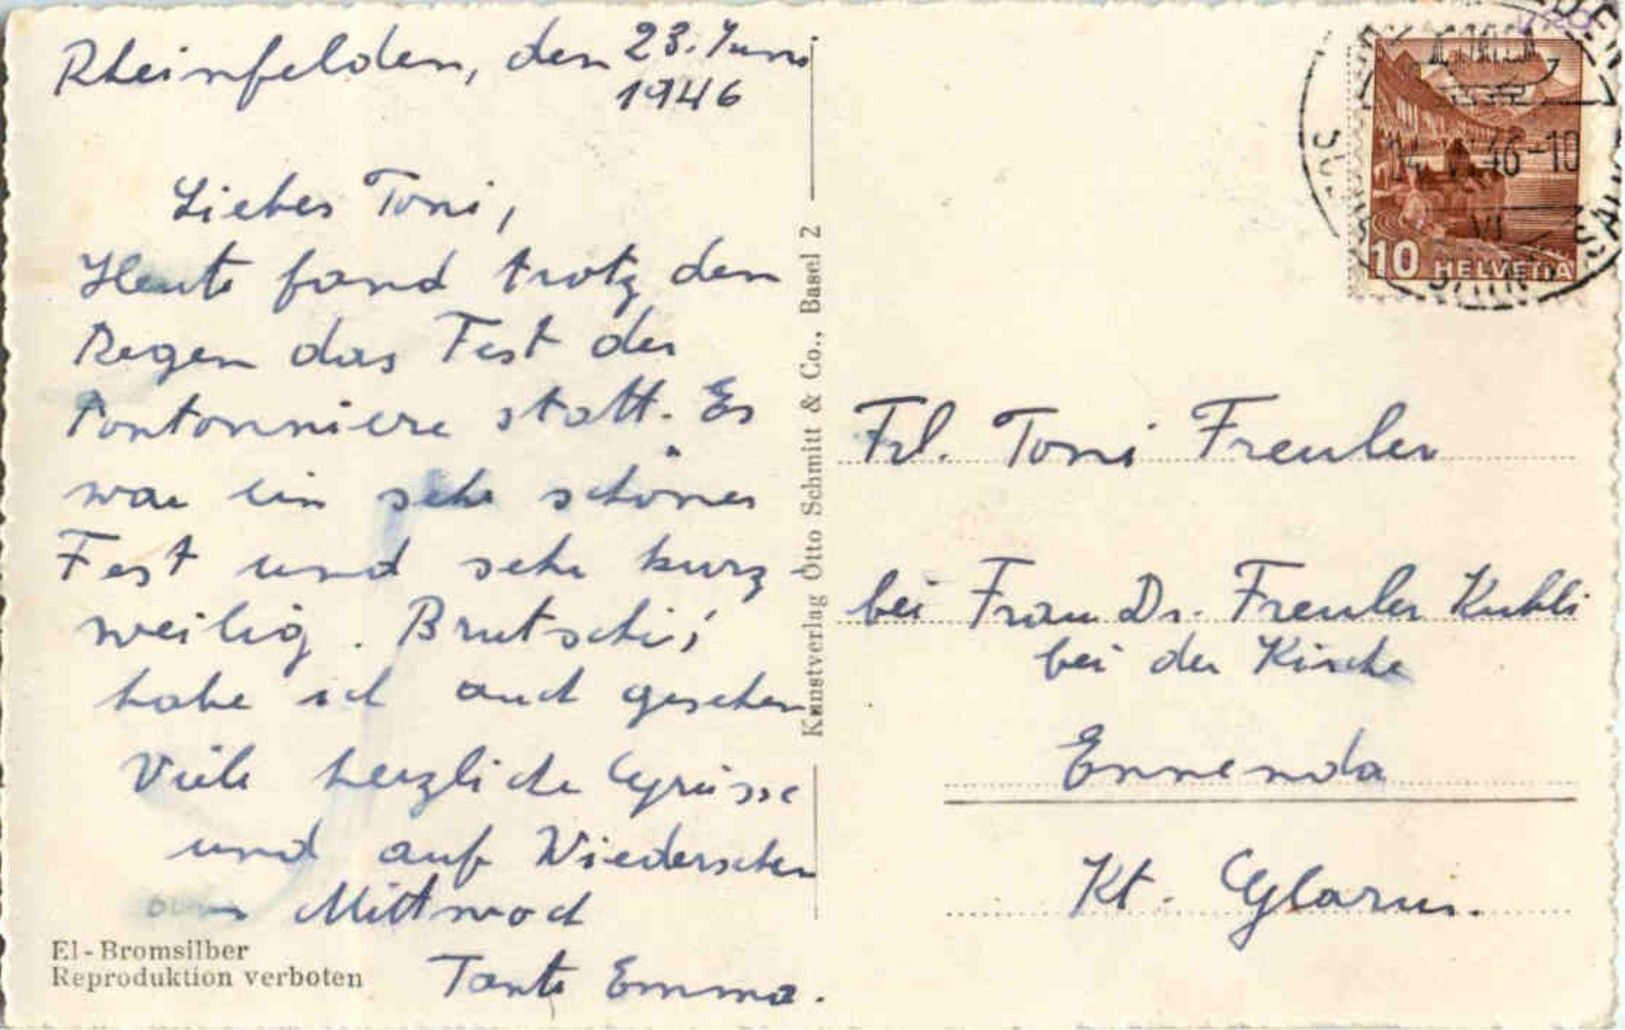 Rheinfelden, den 23. Juni
1946
Liebes Toni,
Heute fand trotz dem
Regen das Fest der
Pontonniere statt. Es
war ein sehr schönes
Fest und sehr kurz-
weilig. Brutschi's
habe ich auch gesehen
Viele herzliche Grüsse
und auf Wiedersehen
am Mittwoch
Tante Emma.
El-Bromsilber
Reproduktion verboten
Kunstverlag Otto Schmitt & Co., Basel 2
10 HELVETIA
VI 46-10
Frl. Toni Freuler
bei Frau Dr. Freuler Kubli
bei der Kirche
Ennenda
Kt. Glarus.